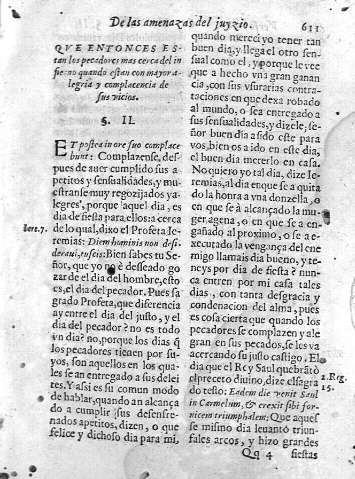 De las amenazas del juyzio. 611
QVE ENTONCES ES-
tan los pecadores mas cerca del in
fierno quando estan con mayor a-
legria y complacencia de
sus vicios.
§. II.
ET postea in ore suo complace
bunt: Complazense, des-
pues de auer cumplido sus a-
petitos y sensualidades, y mu-
estranse muy regozijados ya-
legres, porque aquel dia, es
dia de fiesta para ellos: a cerca
Iere. 7.
de lo qual, dixo el Profeta Ie-
remias: Diem hominis non desi-
deraui, tu scis: Bien sabes tu Se-
ñor, que yo no è desseado go
zar de el dia del hombre, esto
es, el dia del pecador. Pues sa
grado Profeta, que diferencia
ay entre el dia del justo, y el
dia del pecador? no es todo
vn dia? no, porque los dias q̃
los pecadores tienen por su-
yos, son aquellos en los qua-
les se an entregado a sus delei
tes. Y assi es su comun modo
de hablar, quando an alcança
do a cumplir sus desenfre-
nados apetitos, dizen, o que
felice y dichoso dia para mi,
quando mereci yo tener tan
buen dia, y llega el otro sen-
sual como el, y porque le vee
que a hecho vna gran ganan
cia, con sus vsurarias contra-
taciones en que dexa robado
al mundo, o se a entregado a
sus sensualidades, y dizele; se-
ñor buen dia a sido este para
vos, bien os a ido en este dia,
el buen dia metedlo en casa.
No quiero yo tal dia, dize Ie-
remias, al dia en que se a quita
do la honra a vna donzella, o
en que se â alcançado la mu-
ger agena, o en que se a en-
gañado al proximo, o se a e-
xecutado la vengança del ene
migo llamais dia bueno, y te-
neys por dia de fiesta è nun-
ca entren por mi casa tales
dias, con tanta desgracia y
condenacion del alma, pues
es cosa cierta que quando los
pecadores se complazen y ale
gran en sus pecados, se les va
acercando su justo castigo. El
dia que el Rey Saul quebrãtò
2. Reg.
el precepto diuino, dize el sagra
15.
do testo: Eadem die venit Saul
in Carmelum, & erexit sibi for-
nicem triumphalem; Que aquel
se mismo dia leuantò triun-
fales arcos, y hizo grandes
Qq 4 fiestas